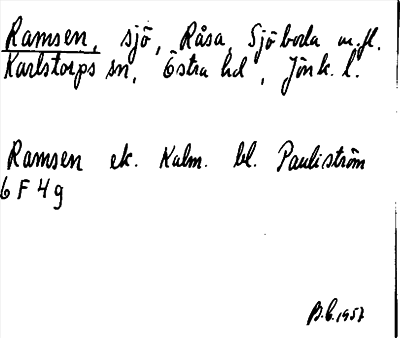 Ramsen, sjö, Råsa, Sjöboda m.fl.
Karlstorps sn, Östra hd, Jönk. l.
Ramsen ek. Kalm. bl. Pauliström
6 F 4 g
B.L. 1957